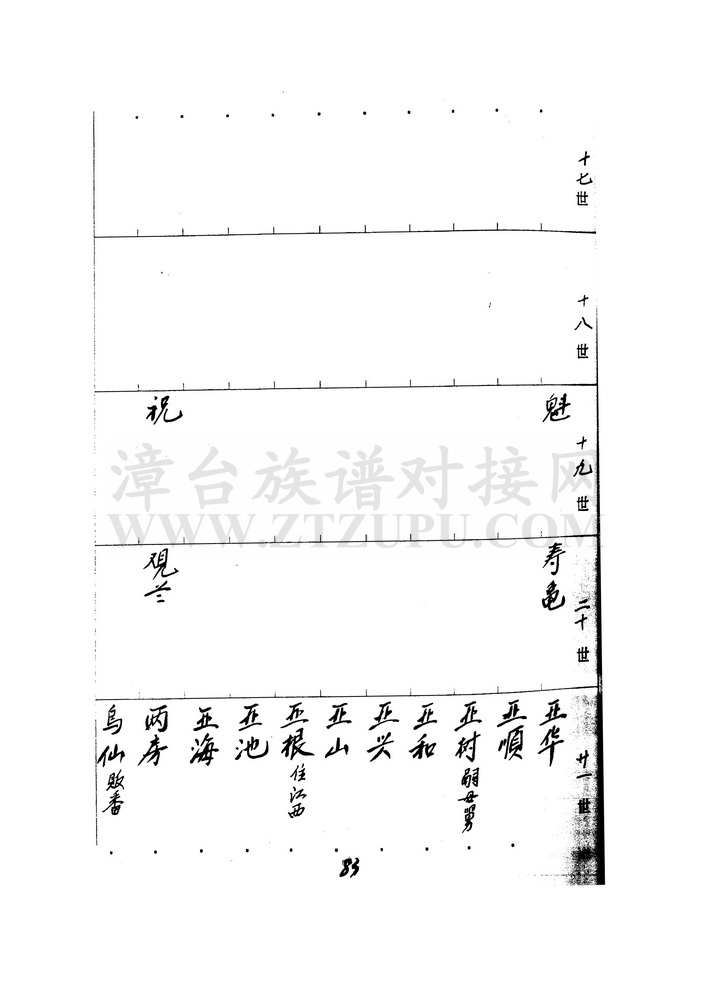 十七世
十八世
十九世
魁
祝
二十世
寿龟
观兰
廿一世
亚华
亚順
亚树 嗣母舅
亚和
亚兴
亚山
亚根 住江西
亚池
亚海
两房
乌仙 敗番
83
漳台族谱对接网
WWW.ZTZUPU.COM